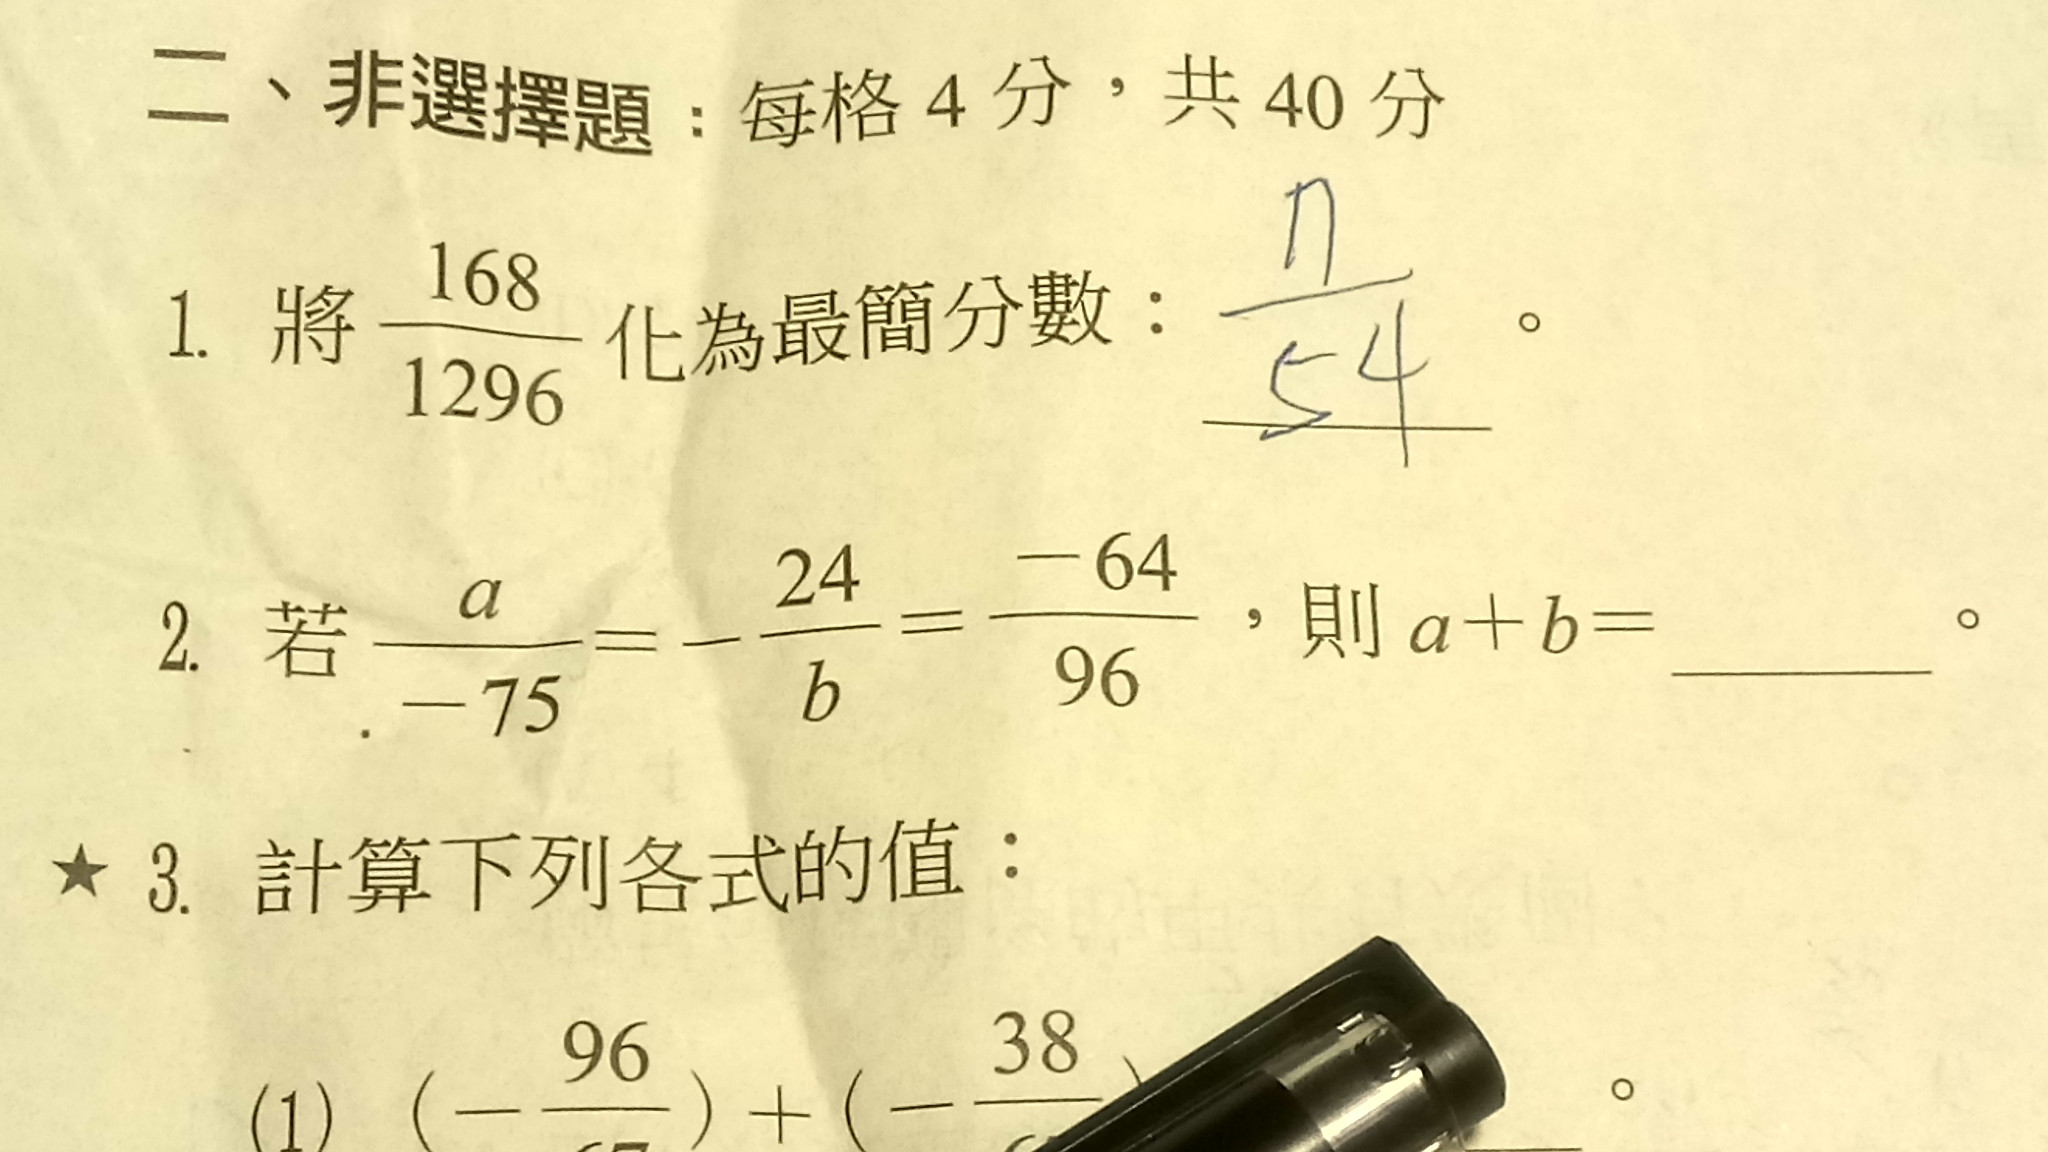 二、非選擇題：每格 4 分，共 40 分
1. 將 168/1296 化為最簡分數： 7/54 。
2. 若 a/-75 = - 24/b = -64/96 ，則 a＋b＝______。
★ 3. 計算下列各式的值：
(1) (- 96/67) + (- 38/ 。